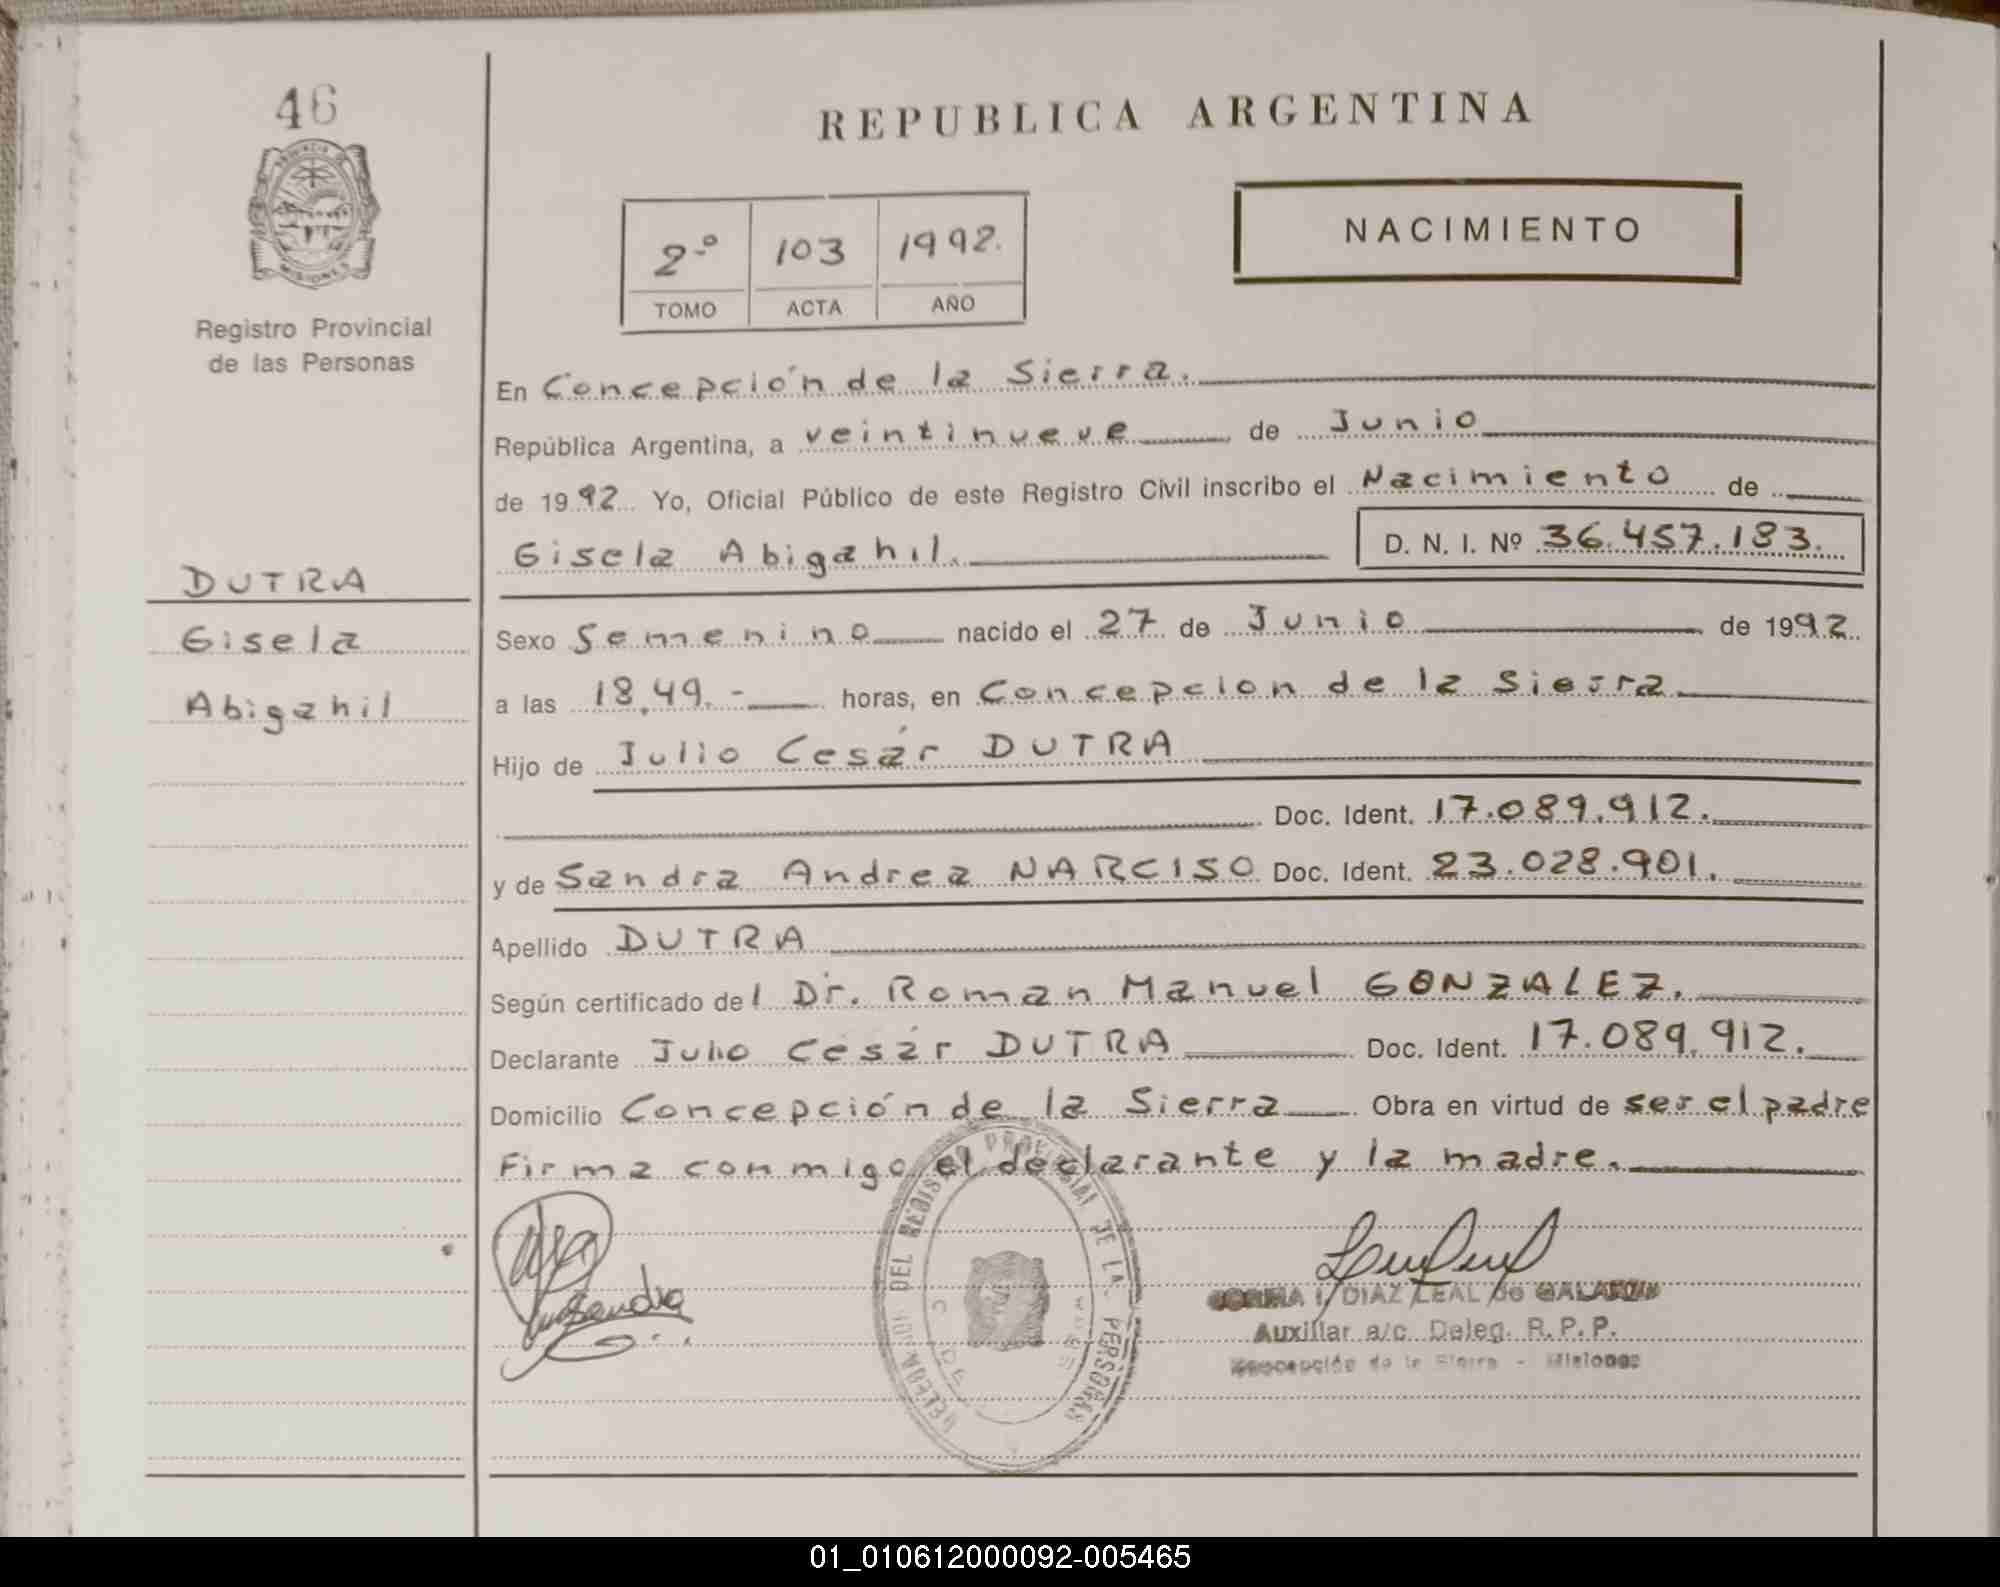 46
PROVINCIA DE
MISIONES
Registro Provincial
de las Personas
DUTRA
Gisela
Abigahil
REPUBLICA ARGENTINA
2º 103 1992.
TOMO ACTA AÑO
NACIMIENTO
En Concepción de la Sierra.
República Argentina, a veintinueve de Junio
de 1992 Yo, Oficial Público de este Registro Civil inscribo el Nacimiento de
Gisela Abigahil. D. N. I. Nº 36.457.183.
Sexo Femenino nacido el 27 de Junio de 1992
a las 18,49.- horas, en Concepcion de la Sierra
Hijo de Julio Cesár DUTRA
Doc. Ident. 17.089.912.
y de Sandra Andrea NARCISO Doc. Ident. 23.028.901.
Apellido DUTRA
Según certificado del Dr. Roman Manuel GONZALEZ.
Declarante Julio Cesár DUTRA Doc. Ident. 17.089.912.
Domicilio Concepción de la Sierra Obra en virtud de ser el padre
Firma conmigo el declarante y la madre.
Sandra
DEL REGISTRO PROVINCIAL DE LAS PERSONAS
I. DIAZ LEAL de GALARZA
Auxiliar a/c. Deleg. R. P. P.
Concepción de la Sierra - Misiones
01_010612000092-005465